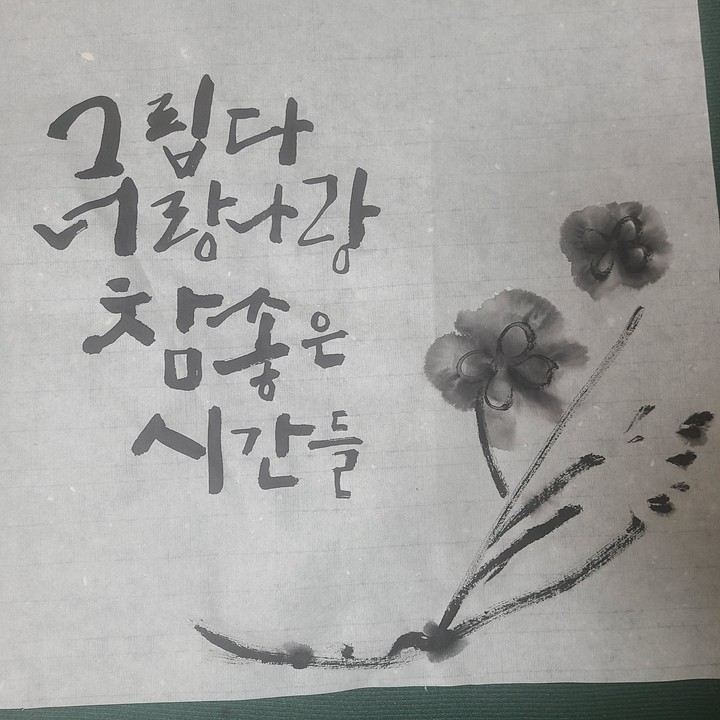 그립다
너랑나랑
참좋은
시간들